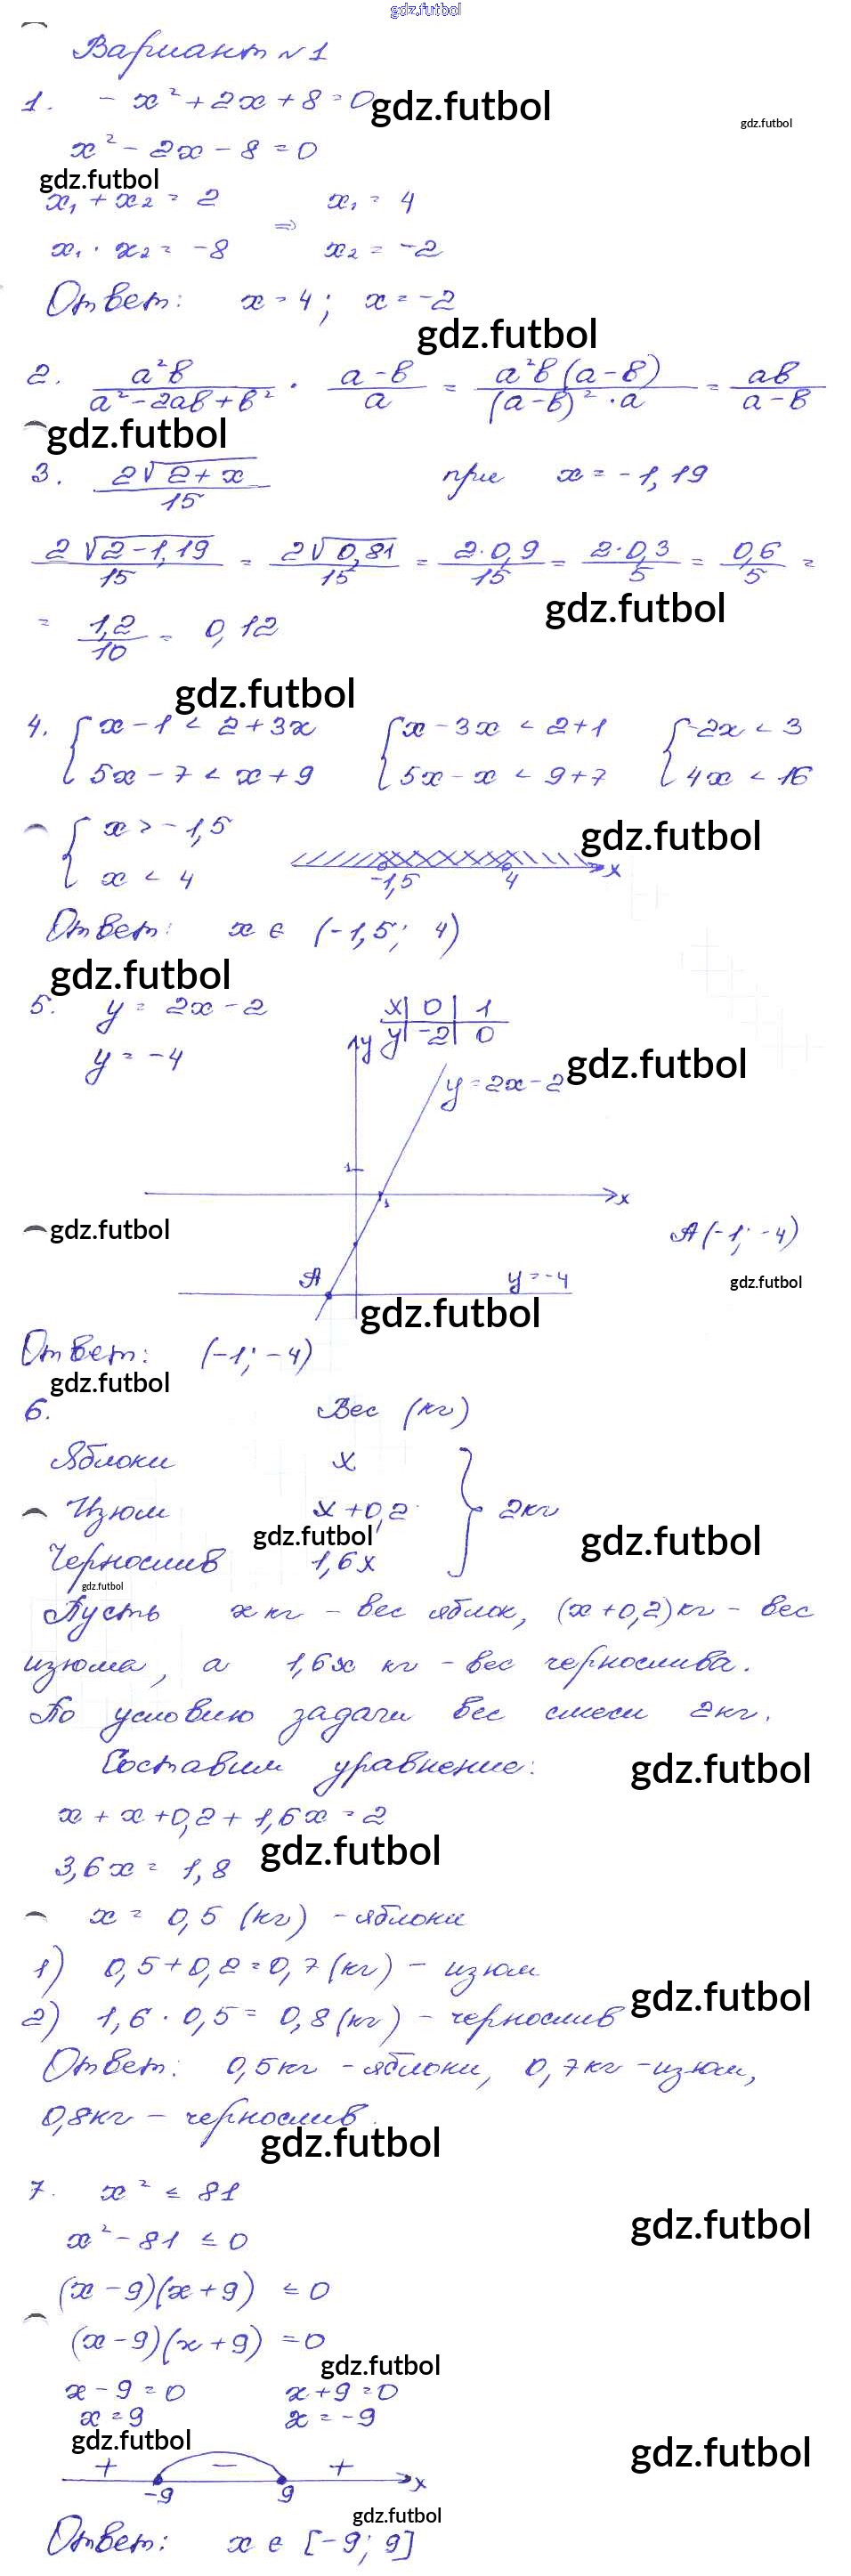 gdz.futbol
Вариант №1
1. -x² + 2x + 8 = 0 gdz.futbol
gdz.futbol
x² - 2x - 8 = 0
gdz.futbol
x₁ + x₂ = 2 x₁ = 4
⇒
x₁ · x₂ = -8 x₂ = -2
Ответ: x = 4; x = -2
gdz.futbol
2. a²b/(a² - 2ab + b²) · (a - b)/a = a²b(a - b)/((a - b)² · a) = ab/(a - b)
gdz.futbol
3. 2√(2 + x)/15 при x = -1,19
2√(2 - 1,19)/15 = 2√(0,81)/15 = 2·0,9/15 = 2·0,3/5 = 0,6/5 =
gdz.futbol
= 1,2/10 = 0,12
gdz.futbol
4. { x - 1 < 2 + 3x { x - 3x < 2 + 1 { -2x < 3
5x - 7 < x + 9 5x - x < 9 + 7 4x < 16
{ x > -1,5
gdz.futbol
x < 4 -1,5 4 x
Ответ: x ∈ (-1,5; 4)
gdz.futbol
5. y = 2x - 2 x | 0 | 1
y = -4 y | -2 | 0
y
y = 2x - 2 gdz.futbol
1
1 x
gdz.futbol
A(-1; -4)
A y = -4 gdz.futbol
gdz.futbol
Ответ: (-1; -4)
gdz.futbol
6. Вес (кг)
Яблоки x
Изюм x + 0,2 } 2кг
gdz.futbol gdz.futbol
Чернослив 1,6x
gdz.futbol
Пусть x кг - вес яблок, (x + 0,2) кг - вес
изюма, а 1,6x кг - вес чернослива.
По условию задачи вес смеси 2кг.
Составим уравнение: gdz.futbol
x + x + 0,2 + 1,6x = 2
gdz.futbol
3,6x = 1,8
x = 0,5 (кг) - яблоки
1) 0,5 + 0,2 = 0,7 (кг) - изюм
gdz.futbol
2) 1,6 · 0,5 = 0,8 (кг) - чернослив
Ответ: 0,5кг - яблоки, 0,7кг - изюм,
0,8кг - чернослив.
gdz.futbol
7. x² ≤ 81
gdz.futbol
x² - 81 ≤ 0
(x - 9)(x + 9) ≤ 0
(x - 9)(x + 9) = 0
gdz.futbol
x - 9 = 0 x + 9 = 0
x = 9 x = -9
gdz.futbol
gdz.futbol
+ - +
-9 9 x
gdz.futbol
Ответ: x ∈ [-9; 9]